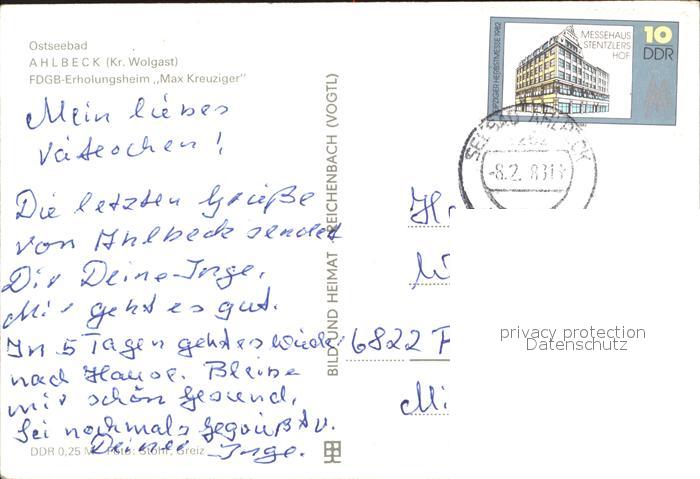 Ostseebad
AHLBECK (Kr. Wolgast)
FDGB-Erholungsheim „Max Kreuziger"
Mein liebes
Väterchen!
Die letzten Grüße
von Ahlbeck sendet
Dir Deine Inge.
Mir geht es gut.
In 5 Tagen geht es wieder
nach Hause. Bleibe
mir schön gesund,
Sei nochmals gegrüßt v.
Deiner Inge.
DDR 0,25 M Foto: Stöhr, Greiz
BILD UND HEIMAT REICHENBACH (VOGTL)
LEIPZIGER HERBSTMESSE 1982
MESSEHAUS
STENTZLERS
HOF
10
DDR
SEEBAD AHLBECK
-8.2.83
6822
privacy protection
Datenschutz